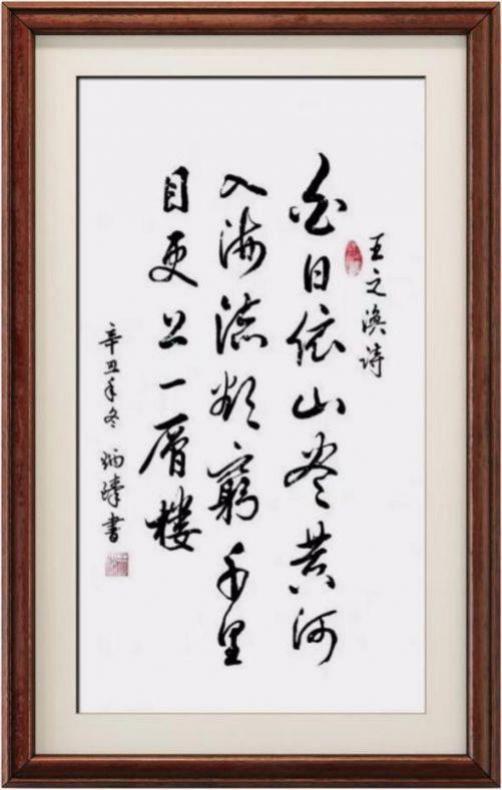 王之涣诗
白日依山尽黄河
入海流欲穷千里
目更上一层楼
辛丑年冬 炳璋书